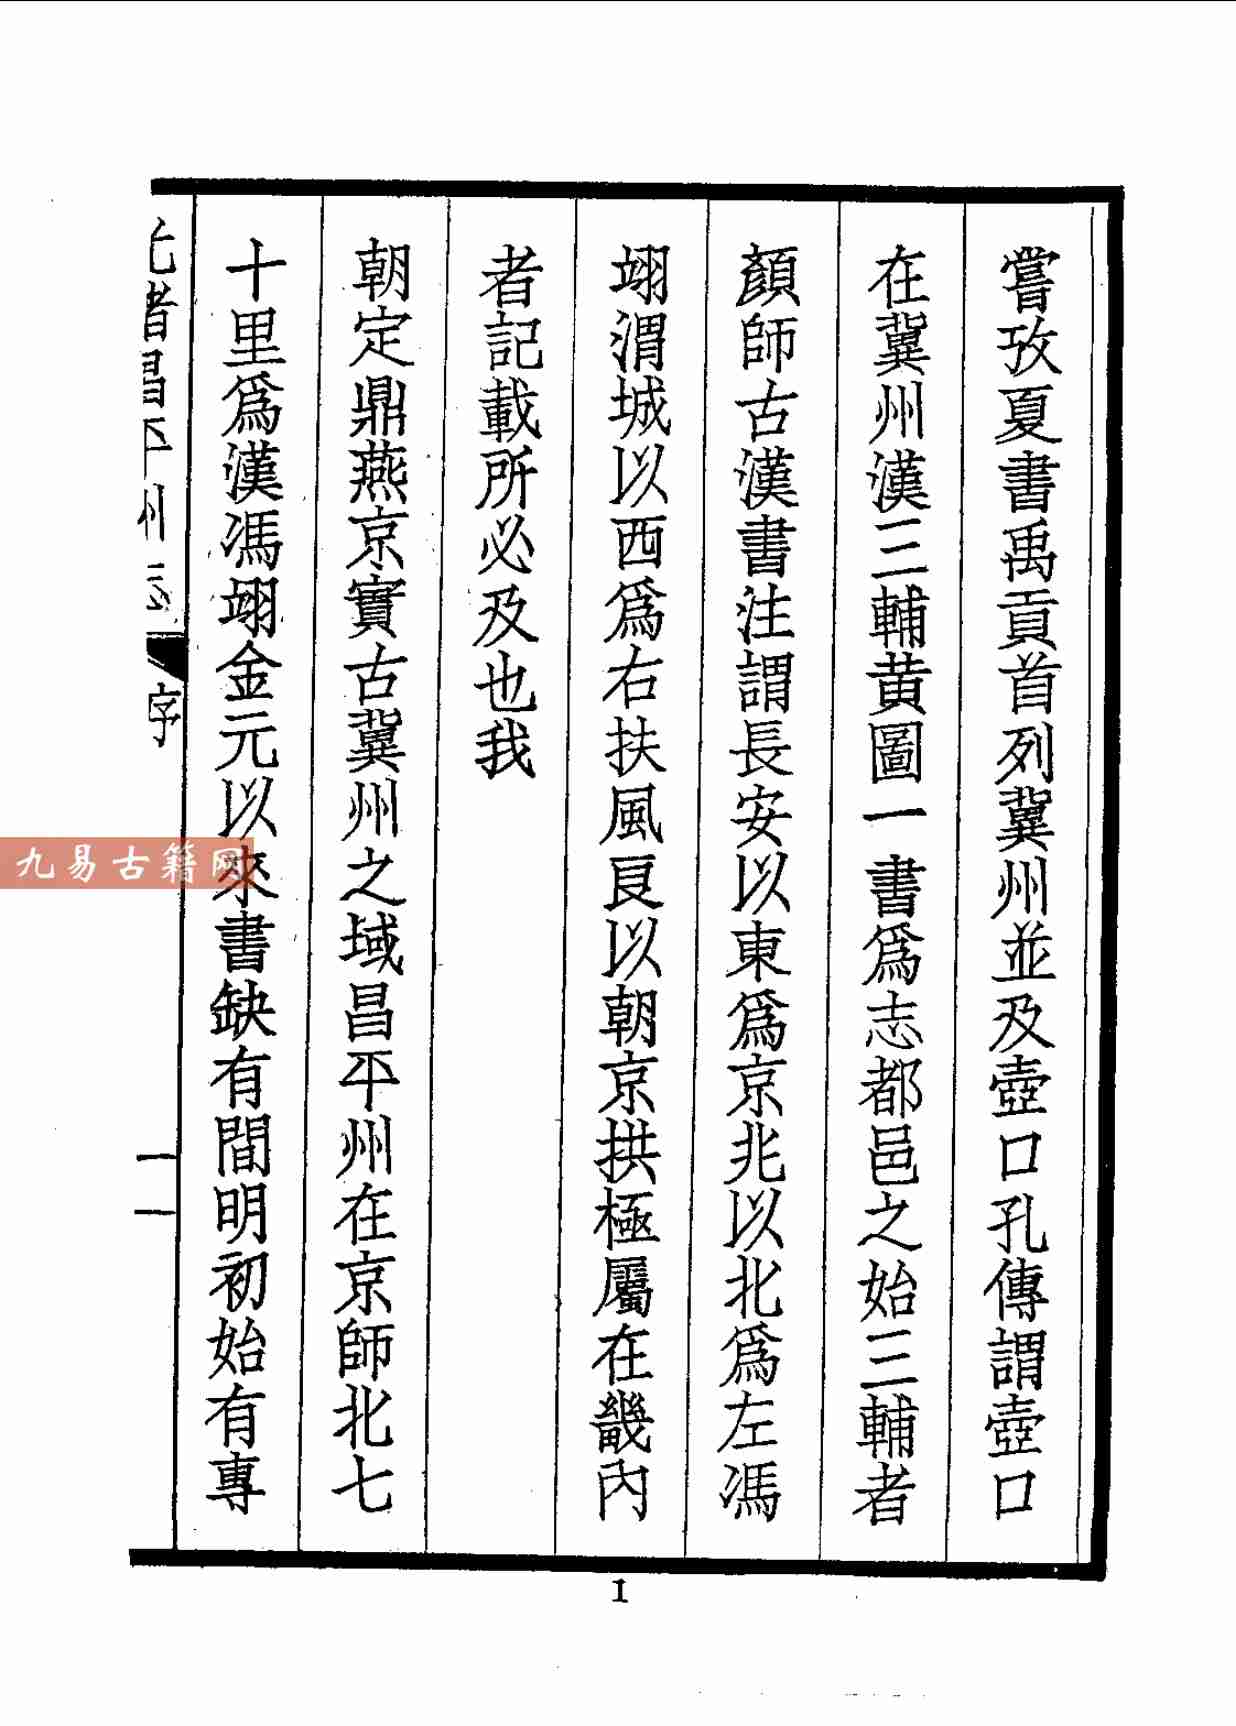 嘗攷夏書禹貢首列冀州並及壺口孔傳謂壺口
在冀州漢三輔黄圖一書爲志都邑之始三輔者
顏師古漢書注謂長安以東爲京兆以北爲左馮
翊渭城以西爲右扶風良以朝京拱極屬在畿內
者記載所必及也我
朝定鼎燕京實古冀州之域昌平州在京師北七
十里爲漢馮翊金元以來書缺有間明初始有專
光緒昌平州志 序 一
九易古籍网
1